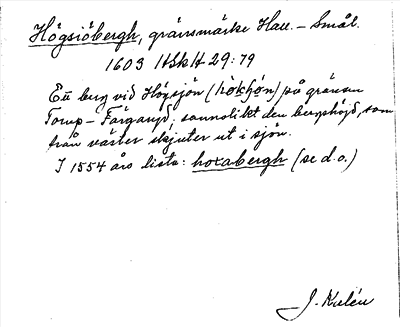 Högsiöbergh, gränsmärke Hall. – Smål.
1603 HSkH 29:79
Ett berg vid Högsjön (hòkʃø̀n) på gränsen
Torup – Färgaryd; sannolikt den bergshöjd, som
från väster skjuter ut i sjön.
I 1554 års lista: hoxabergh (se d.o.)
J. Kalén